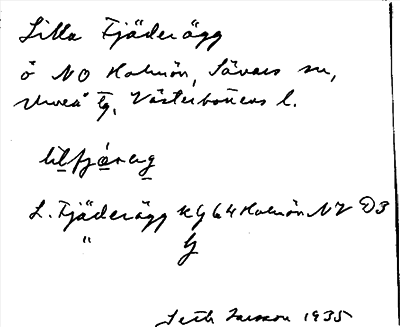 Lilla Fjäderägg
ö NO Holmön, Sävars sn,
Umeå tg, Västerbottens l.
lilfjäreg
L. Fjäderägg 64 Holmön NV D3
"
Seth Larsson 1935